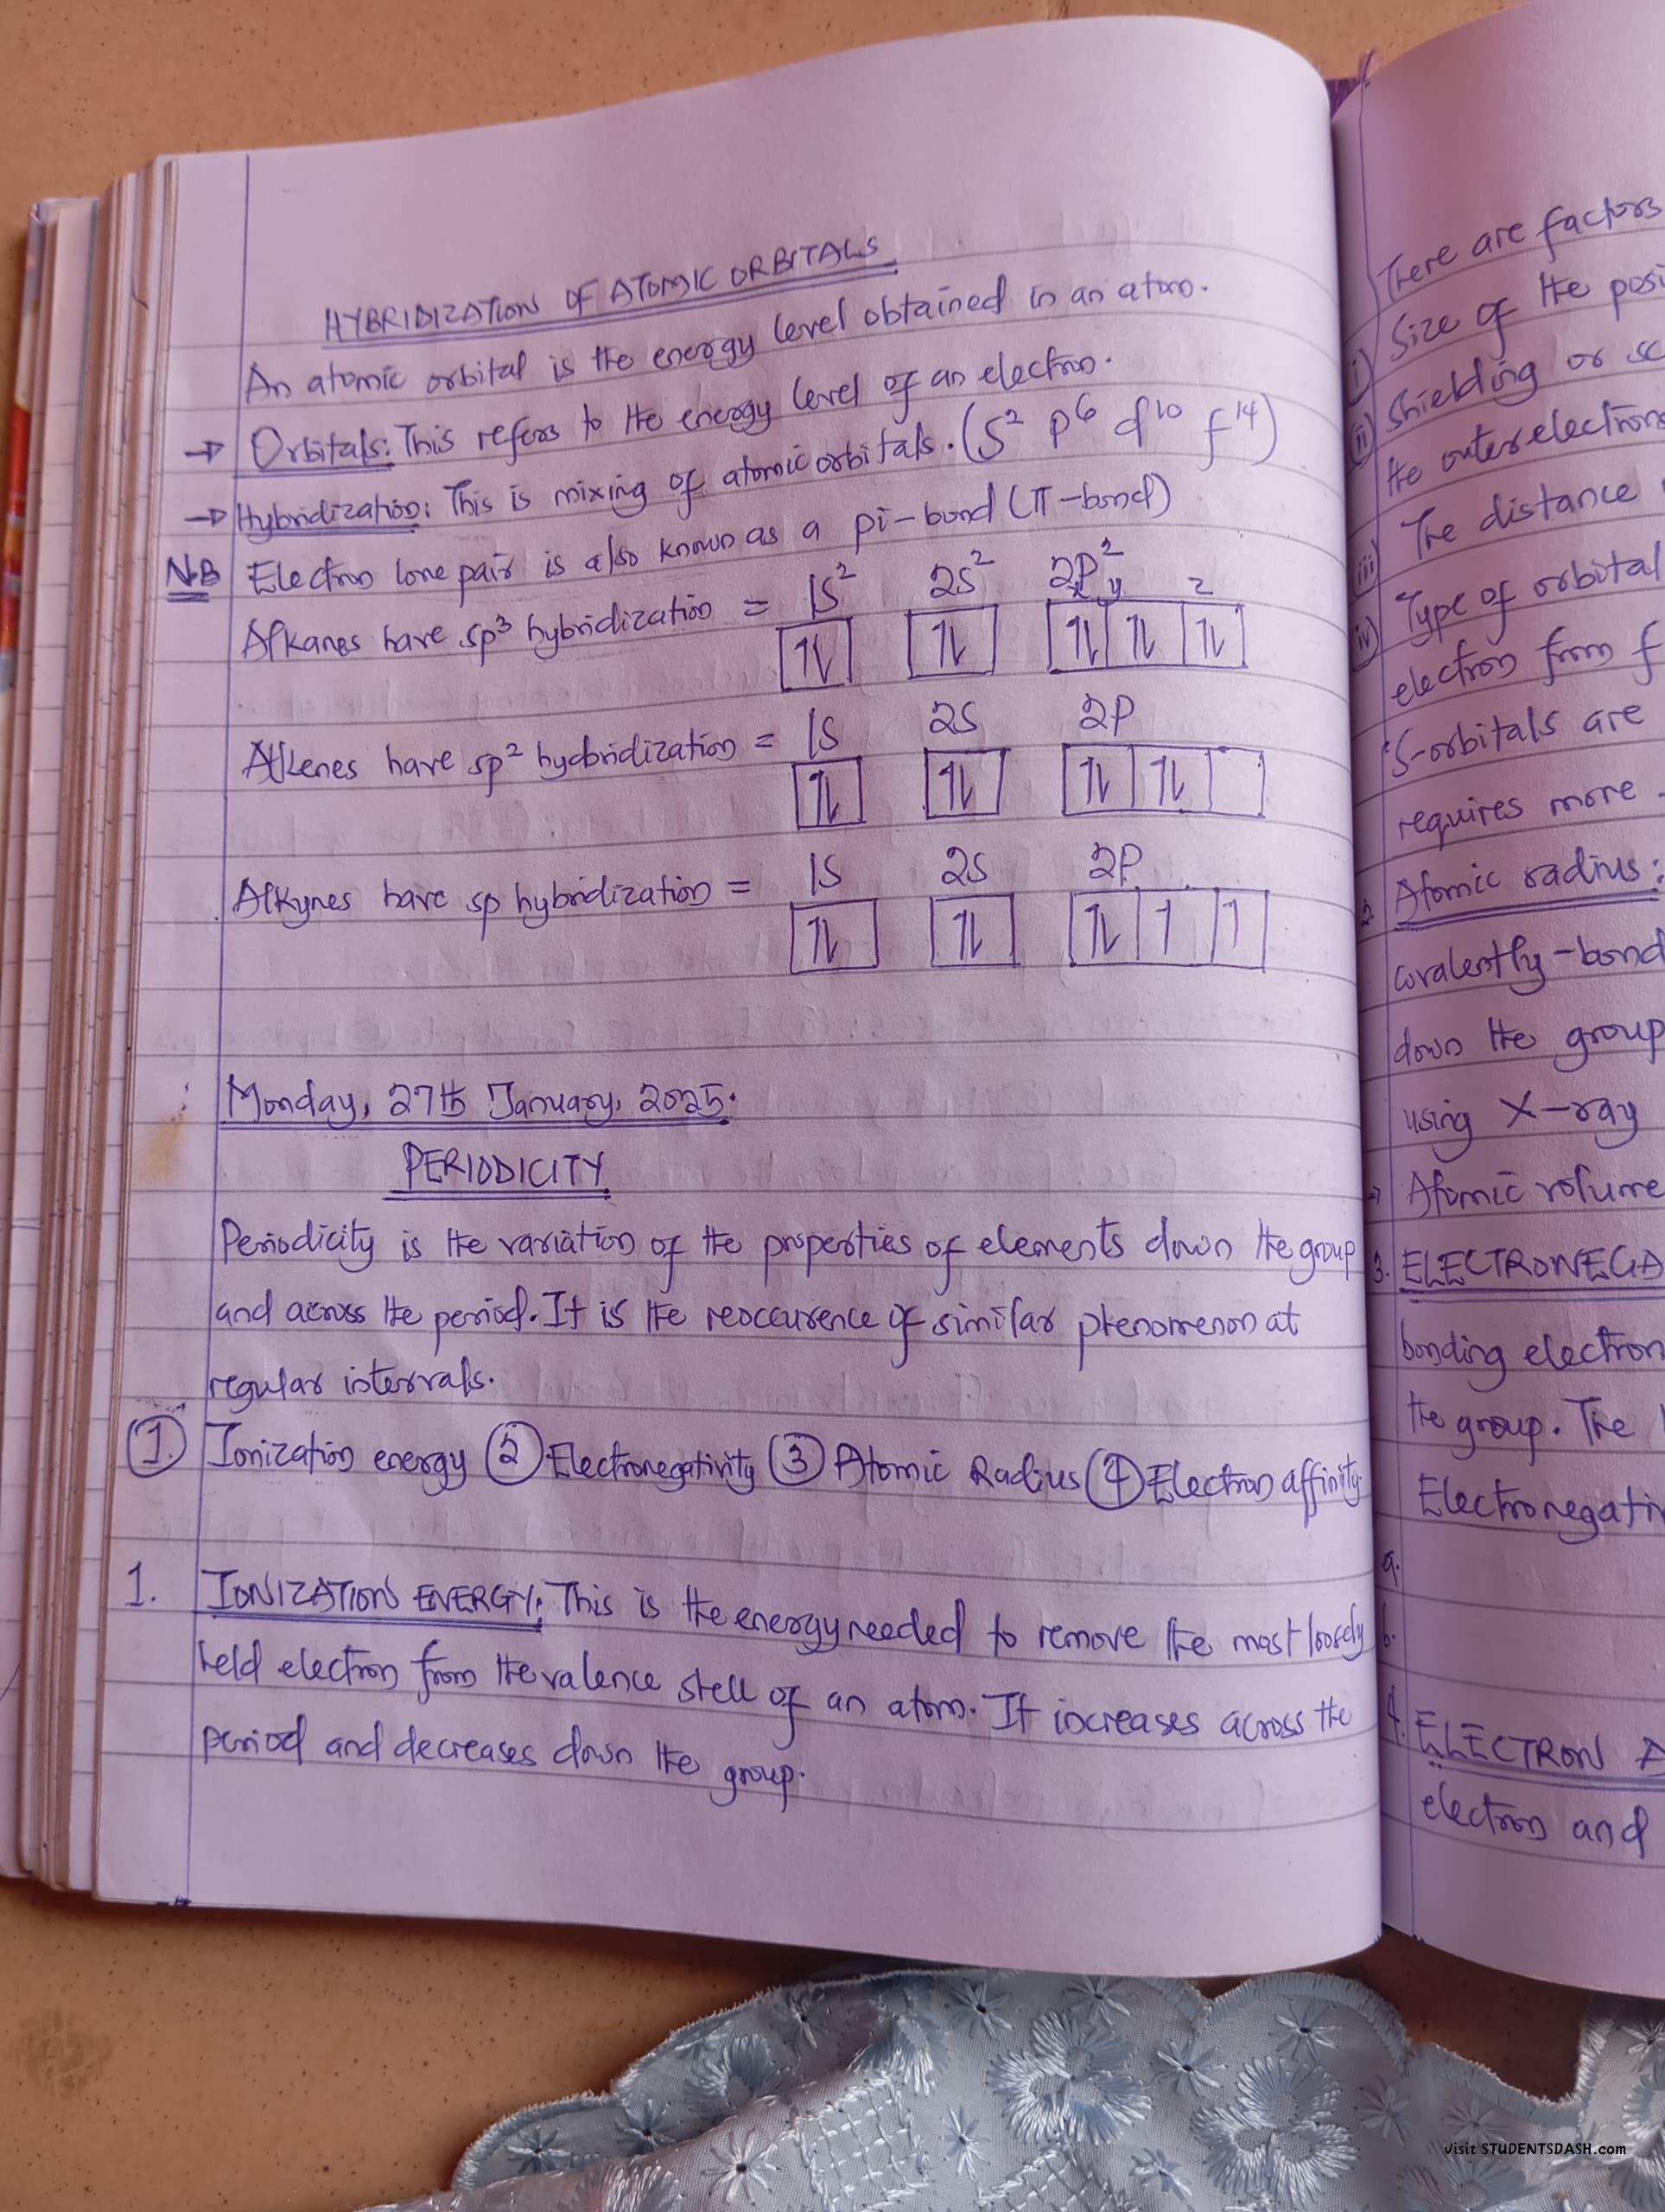 HYBRIDIZATION OF ATOMIC ORBITALS
An atomic orbital is the energy level obtained in an atom.
→ Orbitals: This refers to the energy level of an electron.
→ Hybridization: This is mixing of atomic orbitals. (S² P⁶ d¹⁰ f¹⁴)
N.B Electron lone pair is also known as a pi-bond (π-bond)
Alkanes have sp³ hybridization = 1S² 2S² 2P² x y z
⥮ ⥮ ⥮ ⥮ ⥮
Alkenes have sp² hybridization = 1S 2S 2P
⥮ ⥮ ⥮ ⥮
Alkynes have sp hybridization = 1S 2S 2P
⥮ ⥮ ⥮ 1 1
Monday, 27th January, 2025.
PERIODICITY
Periodicity is the variation of the properties of elements down the group
and across the period. It is the reoccurence of similar phenomenon at
regular intervals.
1. Ionization energy 2 Electronegativity 3 Atomic Radius 4 Electron affinity
1. IONIZATION ENERGY: This is the energy needed to remove the most loosely
held electron from the valence shell of an atom. It increases across the
period and decreases down the group.
There are factors
i) Size of the posi
ii) Shielding or sc
the outer electrons
iii) The distance
iv) Type of orbital
electron from f
S-orbitals are
requires more
2. Atomic radius:
covalently-bond
down the group
using X-ray
→ Atomic volume
3. ELECTRONEGA
bonding electron
the group. The
Electronegativ
a.
b.
4. ELECTRON A
electron and
visit STUDENTSDASH.com